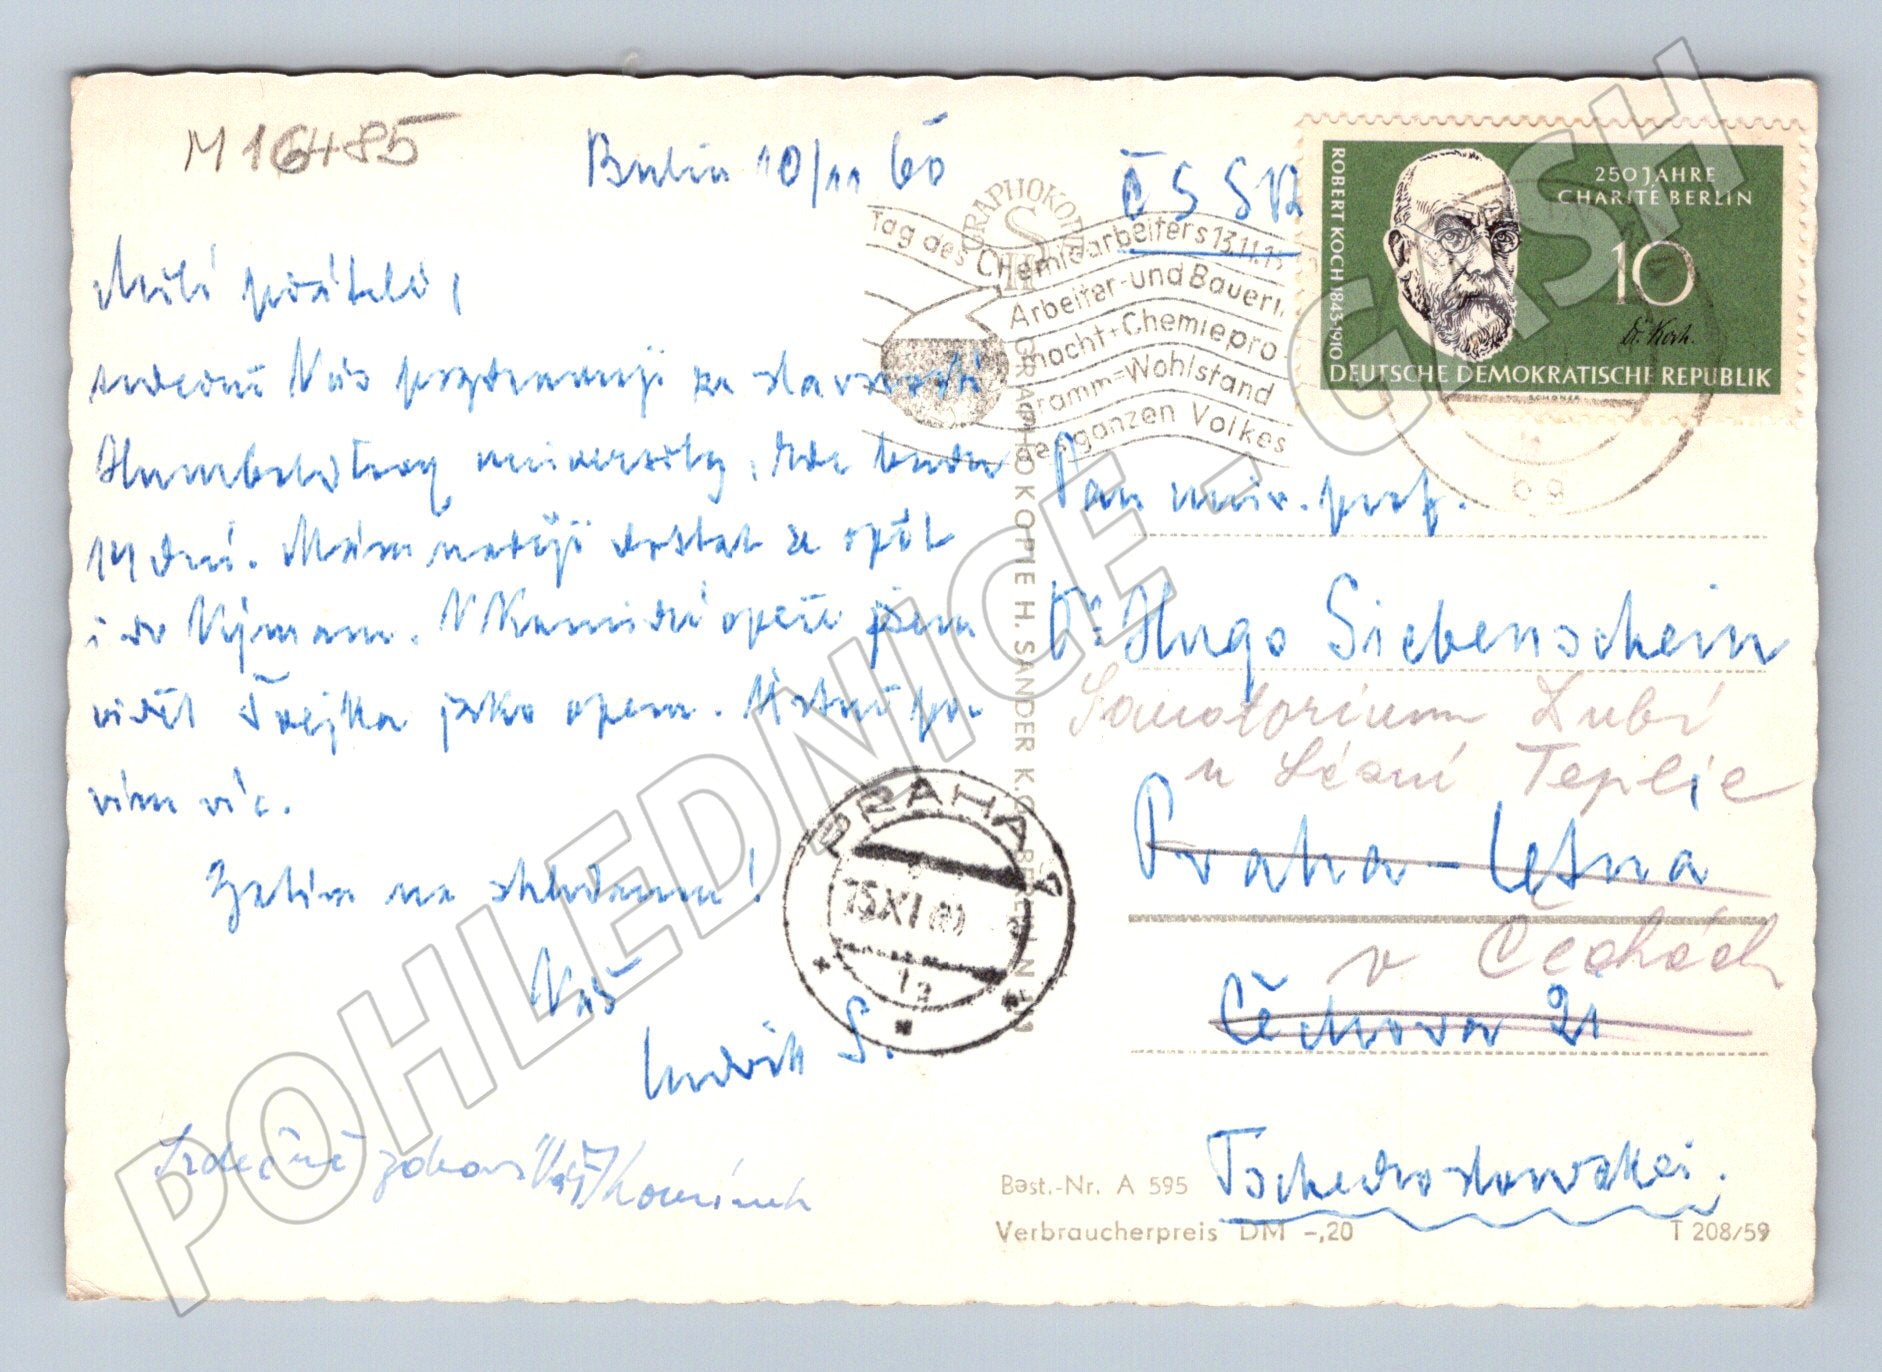 M 16485
Berlin 10/11 60
Milí přátelé,
srdečně Vás pozdravuji ze slavností
Humboldtovy university, kde budu
14 dní. Mám naději dostat se opět
i do Výmaru. V Komické opeře jsem
viděl Švejka jako operu. Ústně po-
vím víc.
Zatím na shledanou!
Váš
Ludvík S.
Srdečně zdraví Váš
ČSSR
GRAPHOKOPIE
S
H
Tag des Chemiearbeiters 13.11.
Arbeiter-und Bauern
macht+Chemiepro
gramm=Wohlstand
des ganzen Volkes
ROBERT KOCH 1843-1910
250 JAHRE
CHARITÉ BERLIN
10
Dr. Koch.
DEUTSCHE DEMOKRATISCHE REPUBLIK
Pan univ. prof.
Dr. Hugo Siebenschein
Sanatorium Dubí
u Lázní Teplic
Praha-Letná
v Čechách
Čechova 21
Tschechoslowakei.
PRAHA 7
15.XI.60
1a
GRAPHOKOPIE H. SANDER K.G. BERLIN N 113
Best.-Nr. A 595
Verbraucherpreis DM -,20
T 208/59
POHLEDNICE - CASH